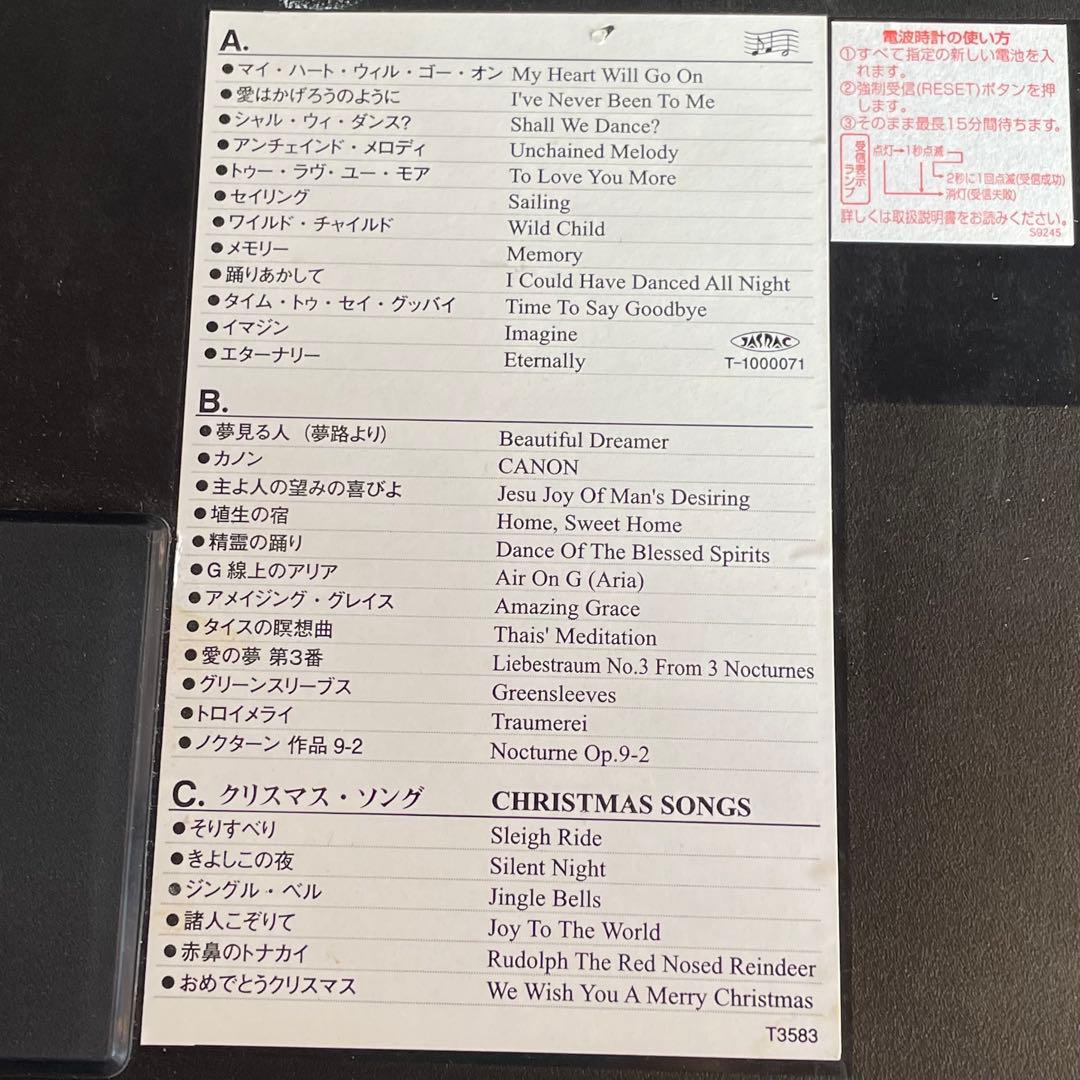 A.
●マイ・ハート・ウィル・ゴー・オン My Heart Will Go On
●愛はかげろうのように I've Never Been To Me
●シャル・ウィ・ダンス? Shall We Dance?
●アンチェインド・メロディ Unchained Melody
●トゥー・ラヴ・ユー・モア To Love You More
●セイリング Sailing
●ワイルド・チャイルド Wild Child
●メモリー Memory
●踊りあかして I Could Have Danced All Night
●タイム・トゥ・セイ・グッバイ Time To Say Goodbye
●イマジン Imagine
●エターナリー Eternally
JASRAC
T-1000071
B.
●夢見る人 (夢路より) Beautiful Dreamer
●カノン CANON
●主よ人の望みの喜びよ Jesu Joy Of Man's Desiring
●埴生の宿 Home, Sweet Home
●精霊の踊り Dance Of The Blessed Spirits
●G 線上のアリア Air On G (Aria)
●アメイジング・グレイス Amazing Grace
●タイスの瞑想曲 Thais' Meditation
●愛の夢 第3番 Liebestraum No.3 From 3 Nocturnes
●グリーンスリーブス Greensleeves
●トロイメライ Traumerei
●ノクターン 作品 9-2 Nocturne Op.9-2
C. クリスマス・ソング CHRISTMAS SONGS
●そりすべり Sleigh Ride
●きよしこの夜 Silent Night
●ジングル・ベル Jingle Bells
●諸人こぞりて Joy To The World
●赤鼻のトナカイ Rudolph The Red Nosed Reindeer
●おめでとうクリスマス We Wish You A Merry Christmas
T3583
電波時計の使い方
①すべて指定の新しい電池を入
れます。
②強制受信(RESET)ボタンを押
します。
③そのまま最長15分間待ちます。
受信表示
ランプ
点灯→1秒点滅
2秒に1回点滅(受信成功)
消灯(受信失敗)
詳しくは取扱説明書をお読みください。
S9245